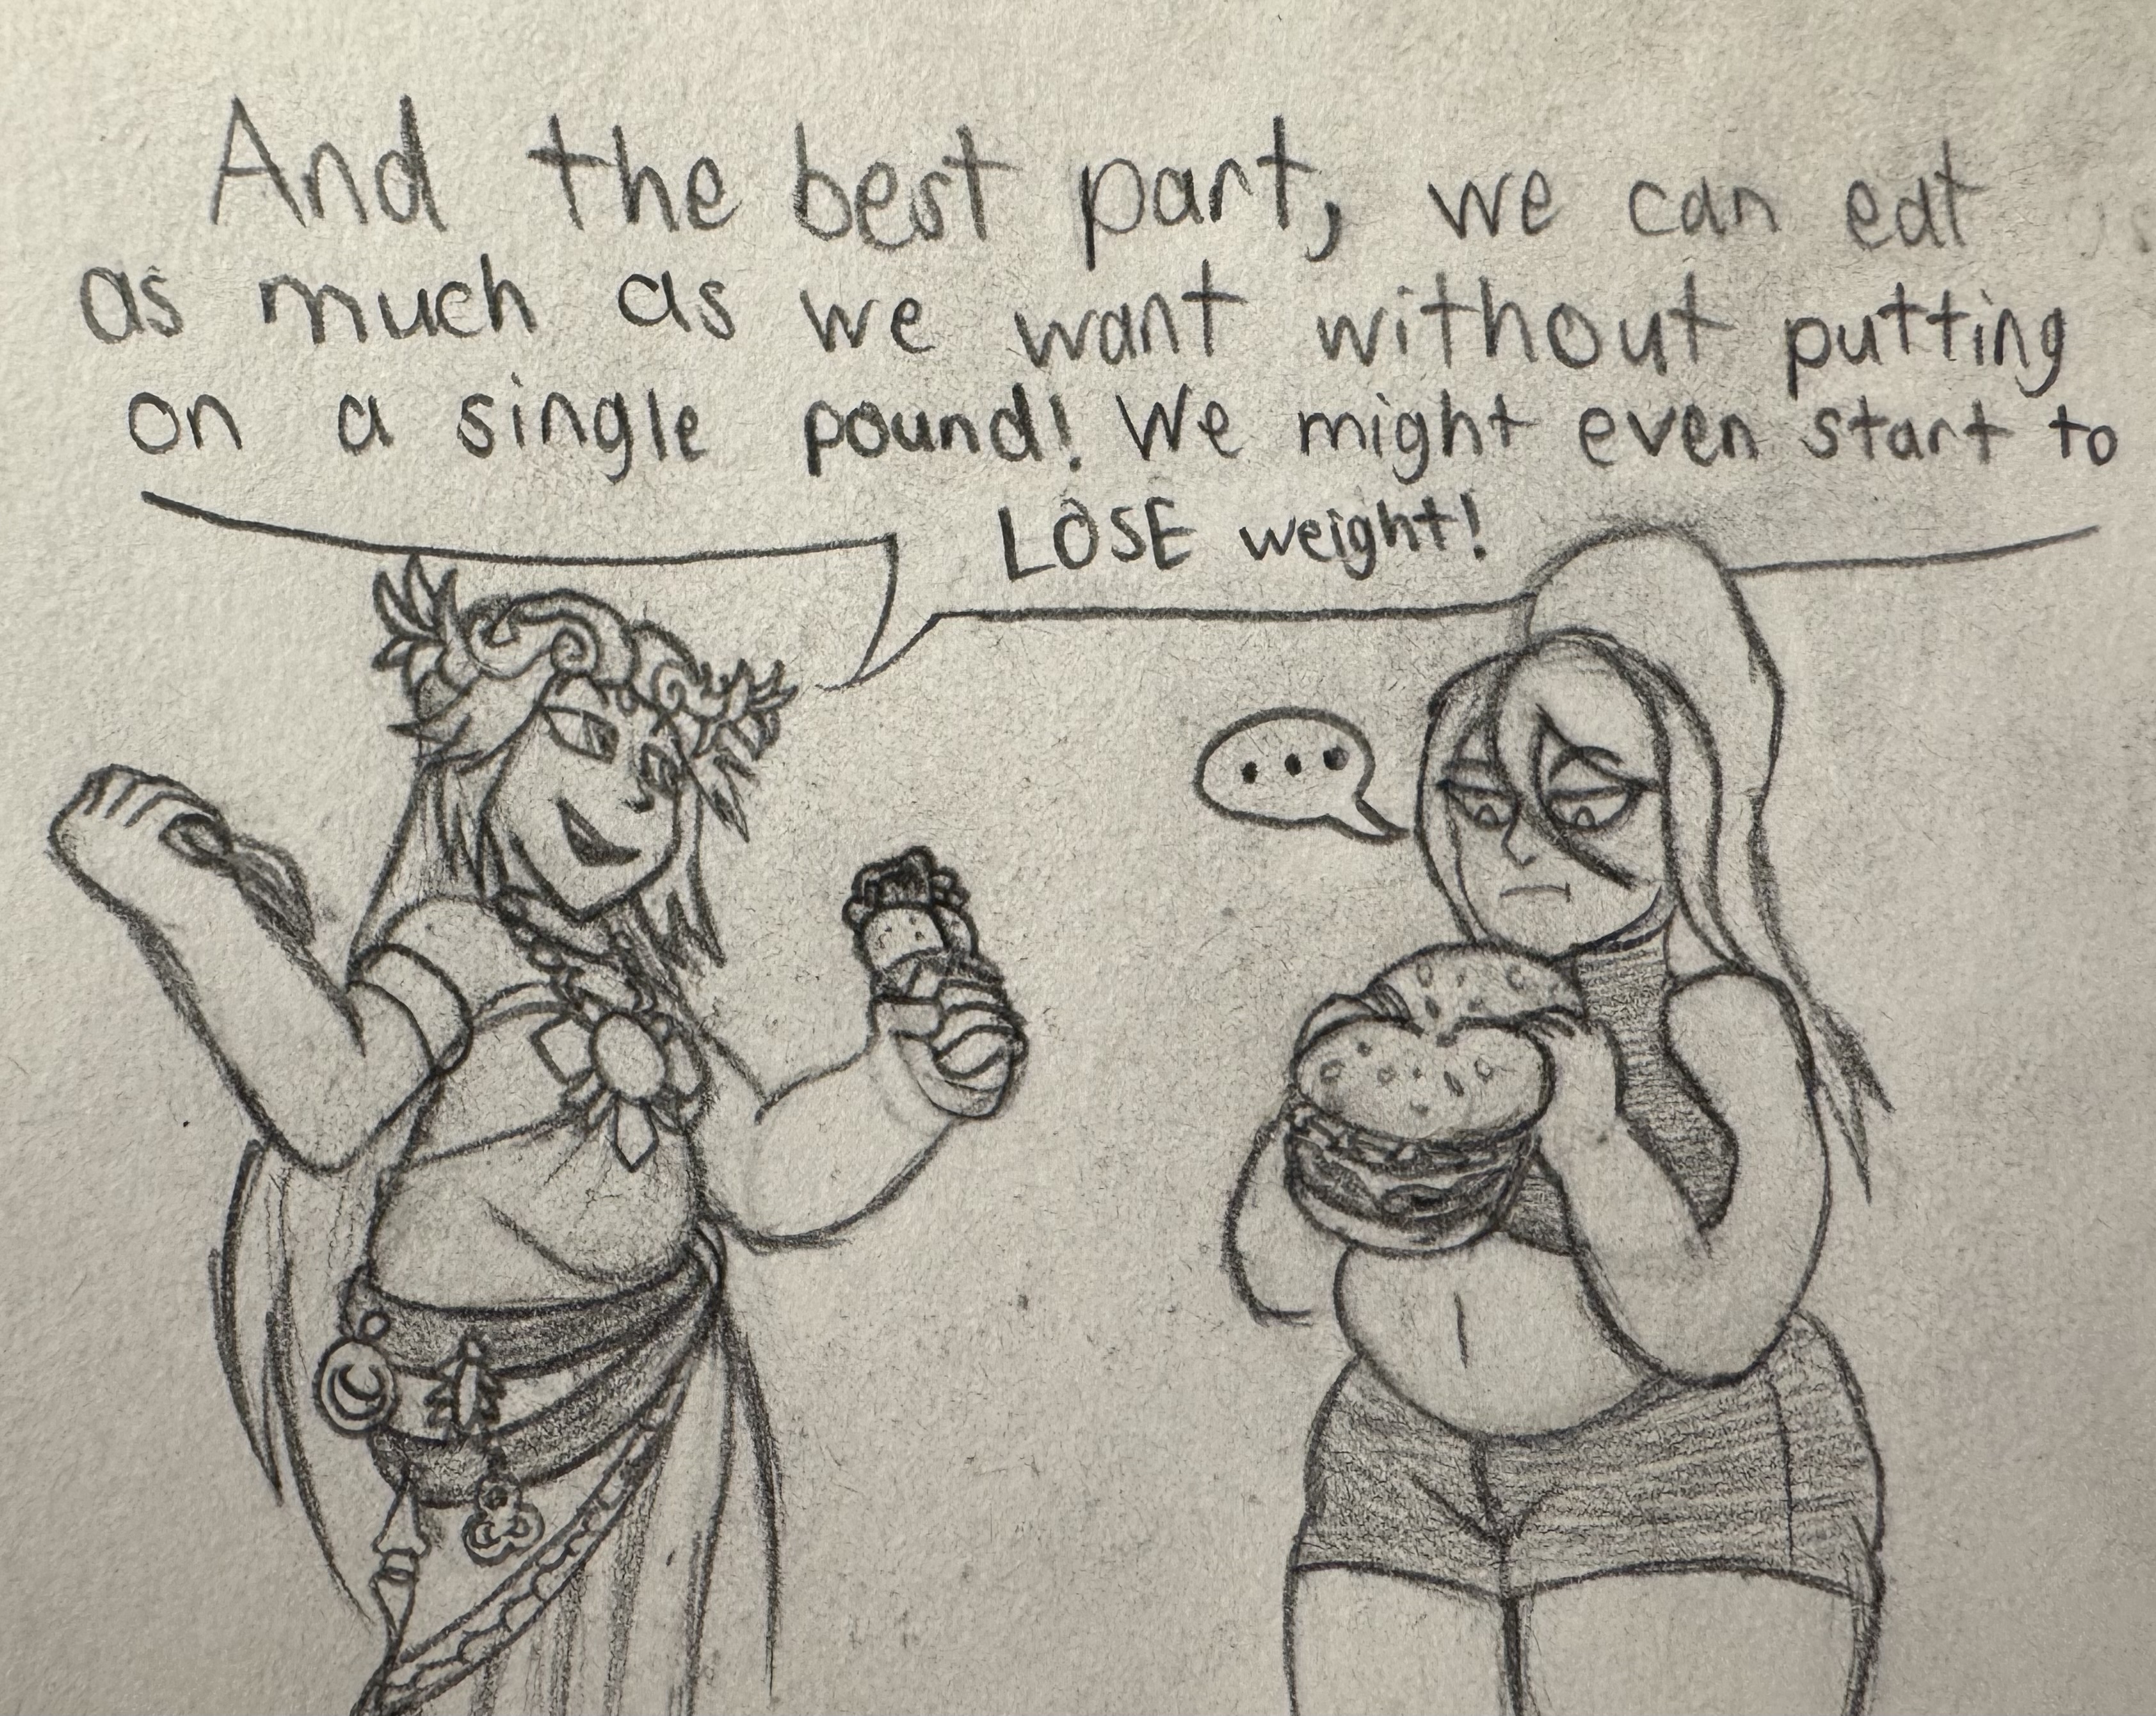 And the best part, we can eat
as much as we want without putting
on a single pound! We might even start to
LOSE weight!
...